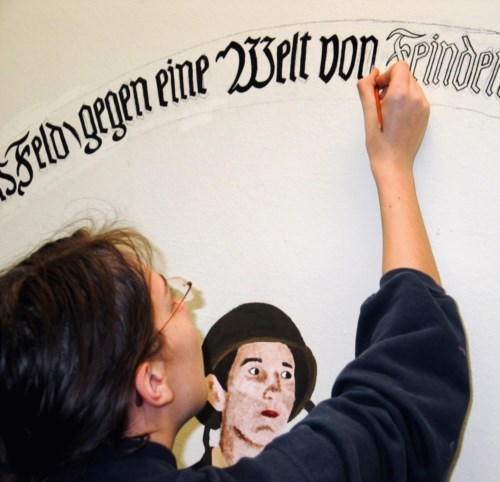 Feld) gegen eine Welt von Feinden